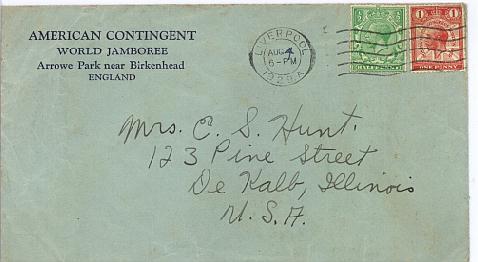 AMERICAN CONTINGENT
WORLD JAMBOREE
Arrowe Park near Birkenhead
ENGLAND
LIVERPOOL
AUG 4
6-PM
1929
½ ½
HALFPENNY
1 1
ONE PENNY
Mrs. C. S. Hunt.
123 Pine Street
De Kalb, Illinois
U.S.A.